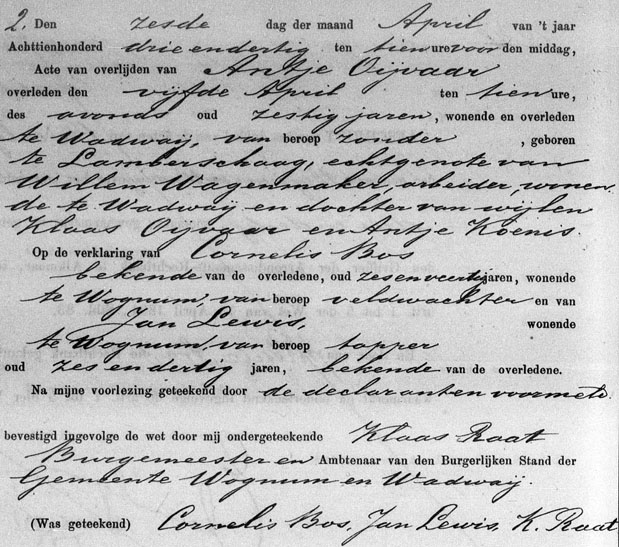 2. Den zesde dag der maand April van 't jaar
Achttienhonderd drie en dertig ten tien ure voor den middag,
Acte van overlijden van Antje Oijvaar
overleden den vijfde April ten tien ure,
des avonds oud zestig jaren, wonende en overleden
te Wadwaij, van beroep zonder, geboren
te Lamberschaag, echtgenote van
Willem Wagenmaker, arbeider, wonen
de te Wadwaij en dochter van wijlen
Klaas Oijvaar en Antje Koenis.
Op de verklaring van Cornelis Bos
bekende van de overledene, oud zes en veertig jaren, wonende
te Wognum, van beroep veldwachter en van
Jan Lewis, wonende
te Wognum, van beroep tapper
oud zes en dertig jaren, bekende van de overledene.
Na mijne voorlezing geteekend door de declaranten voormeld.
bevestigd ingevolge de wet door mij ondergeteekende Klaas Raat
Burgemeester en Ambtenaar van den Burgerlijken Stand der
Gemeente Wognum en Wadwaij.
(Was geteekend) Cornelis Bos, Jan Lewis, K. Raat